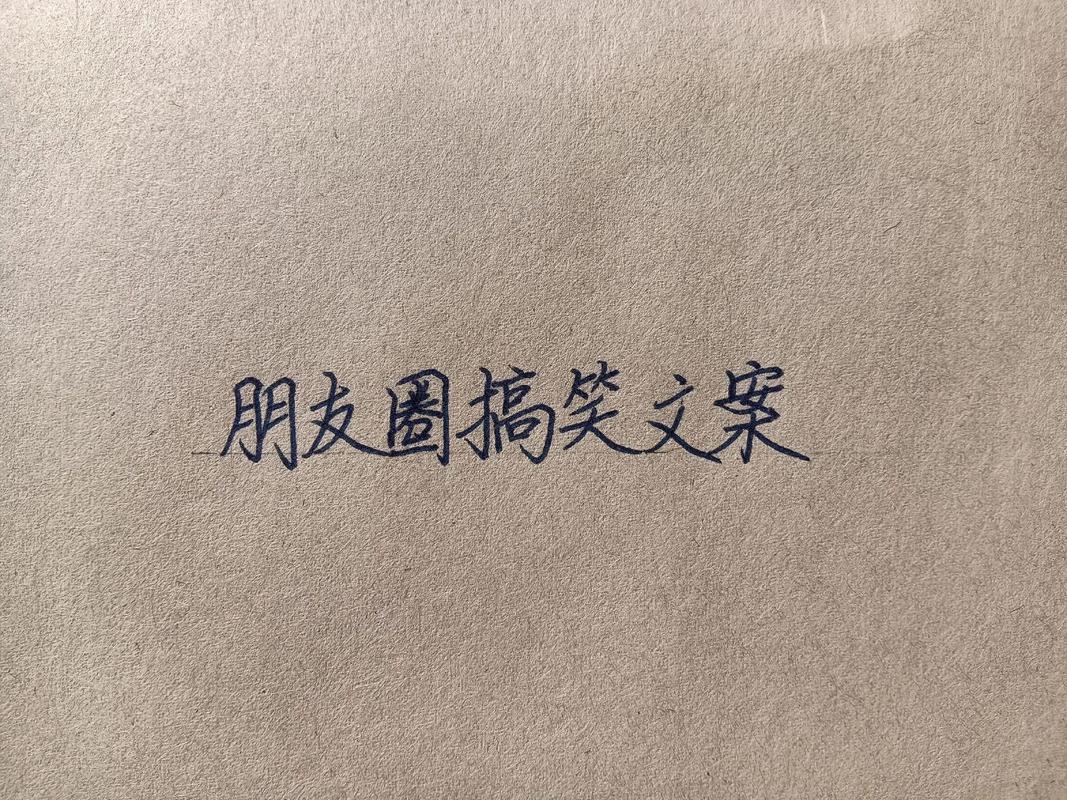 朋友圈搞笑文案